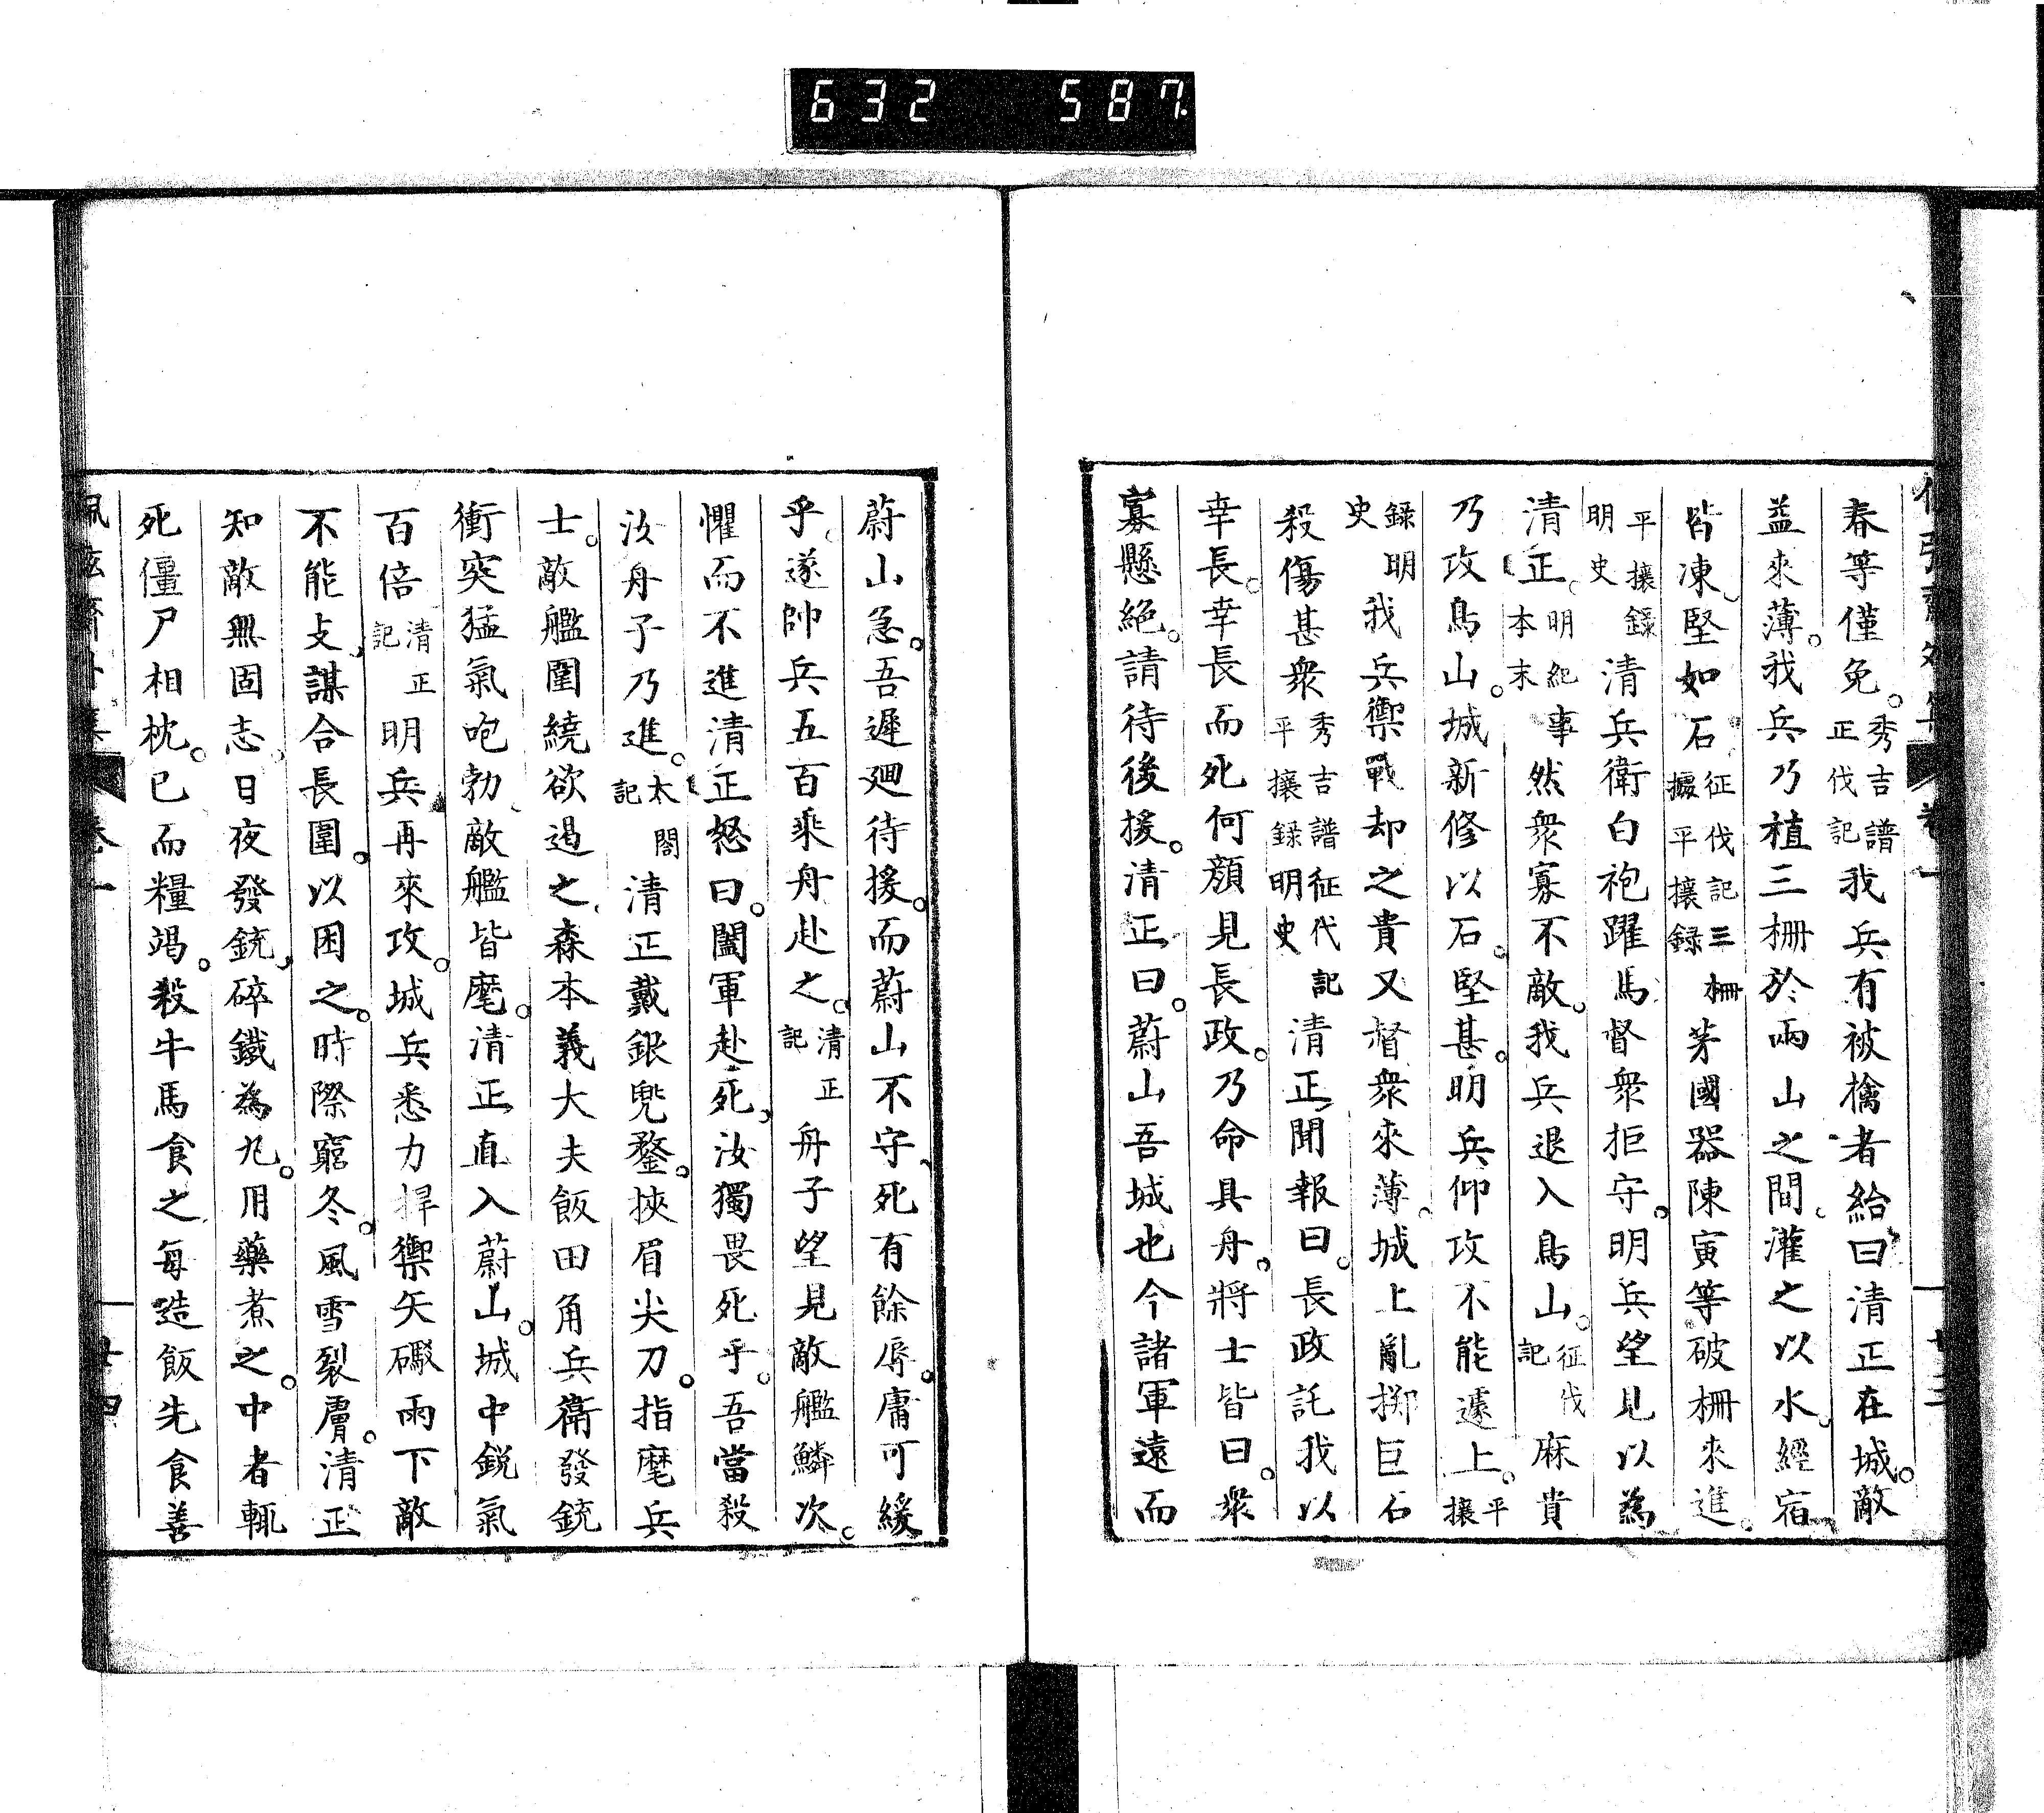 632 587
春等僅免。秀吉譜正伐記我兵有被擒者紿曰清正在城。敵
益來薄。我兵乃植三柵於兩山之間。灌之以水。經宿
皆凍、堅如石征伐記三柵據平攘録茅國器陳寅等破柵來進。
平攘録明史清兵衛白袍躍馬督衆拒守。明兵望見以為
清正。明紀事本末然衆寡不敵。我兵退入鳥山。征伐記麻貴
乃攻鳥山。城新修以石。堅甚。明兵仰攻不能遽上。平攘
録明史我兵禦戰却之貴又督衆來薄。城上亂擲巨石
殺傷甚衆秀吉譜征伐記平攘録明史清正聞報曰。長政託我以
幸長。幸長而死何顔見長政。乃命具舟。將士皆曰。衆
寡懸絶。請待後援。清正曰。蔚山吾城也今諸軍遠而
蔚山急。吾遲廻待援。而蔚山不守、死有餘辱。庸可緩
乎。遂帥兵五百乘舟赴之。清正記舟子望見敵艦鱗次。
懼而不進清正怒曰。闔軍赴死、汝獨畏死乎。吾當殺
汝舟子乃進。太閤記清正戴銀兜鍪。挾眉尖刀。指麾兵
士。敵艦圍繞欲遏之、森本義大夫飯田角兵衛發銃
衝突猛氣咆勃、敵艦皆麾。清正直入蔚山。城中鋭氣
百倍清正記明兵再來攻。城兵悉力捍禦矢礮雨下敵
不能攴、謀合長圍。以困之。時際窮冬。風雪裂膚。清正
知敵無固志。日夜發銃、碎鐵為丸。用藥煮之。中者輒
死僵尸相枕。已而糧竭。殺牛馬食之每造飯先食善
佩弦齋外集 卷一 廿四